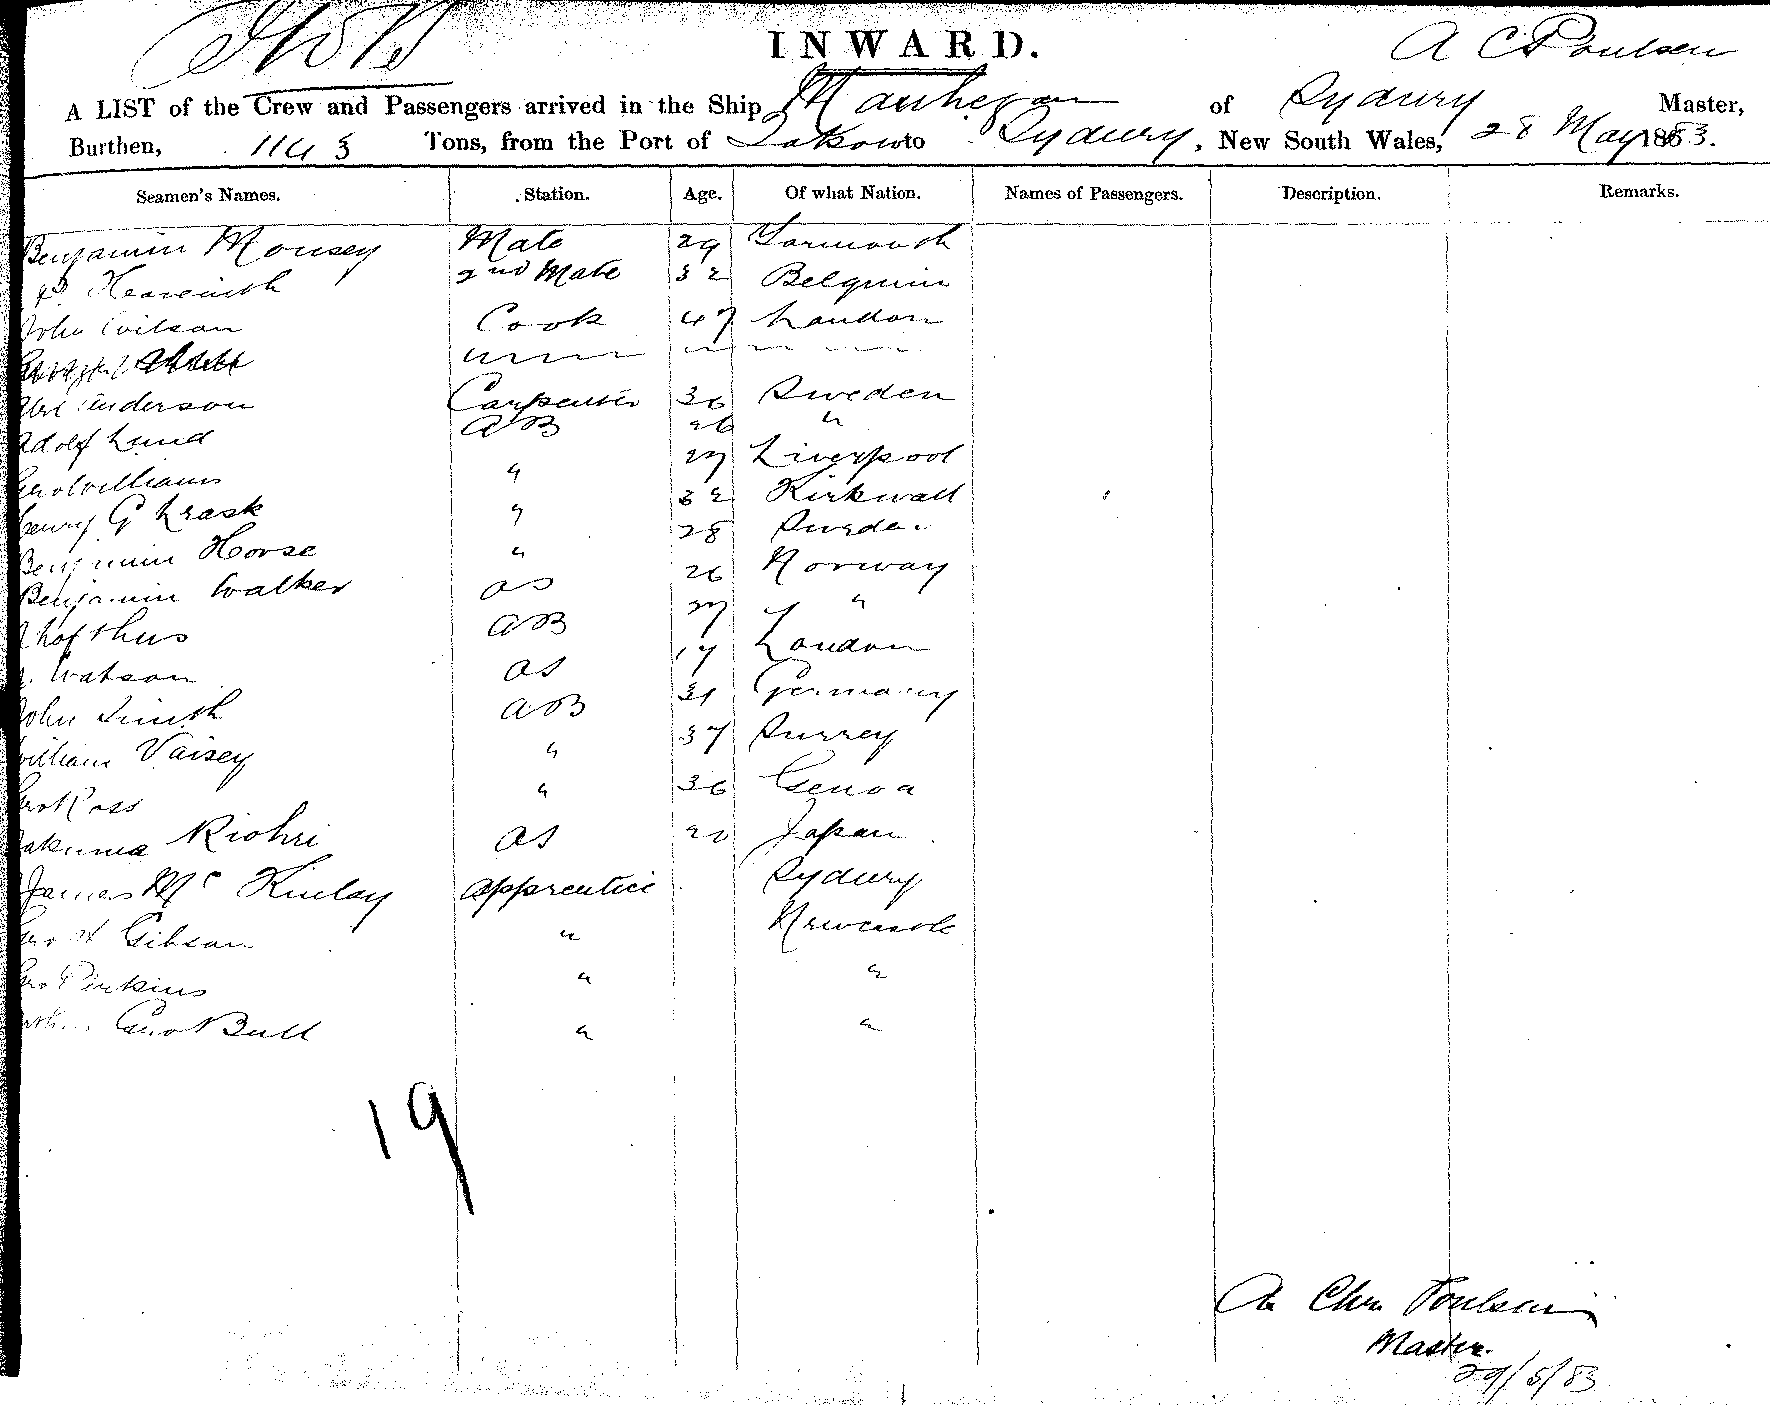 INWARD.
A C Poulsen
A LIST of the Crew and Passengers arrived in the Ship of Sydney Master,
Burthen, 1143 Tons, from the Port of to Sydney, New South Wales, 28 May 1883.
Seamen's Names. Station. Age. Of what Nation. Names of Passengers. Description. Remarks.
Benjamin Mousey Mate 29 Yarmouth
2nd Mate 32 Belgium
John Wilson Cook 47 London
Anderson Carpenter 36 Sweden
Adolf Lund AB 26 "
Geo Williams " 27 Liverpool
Henry G Trask " 32 Kirkwall
Benjamin Horse " 28 Sweden
Benjamin Walker OS 26 Norway
AB 27 "
Watson OS 17 London
John Smith AB 31 Germany
William Vaisey " 37 Surrey
Geo Ross " 36 Genoa
Riohri OS 20 Japan
James Mc Kinlay apprentice Sydney
Geo H Gibson " Newcastle
Geo Perkins " "
Geo Bull " "
19
A Chr Poulsen
Master.
29/5/83